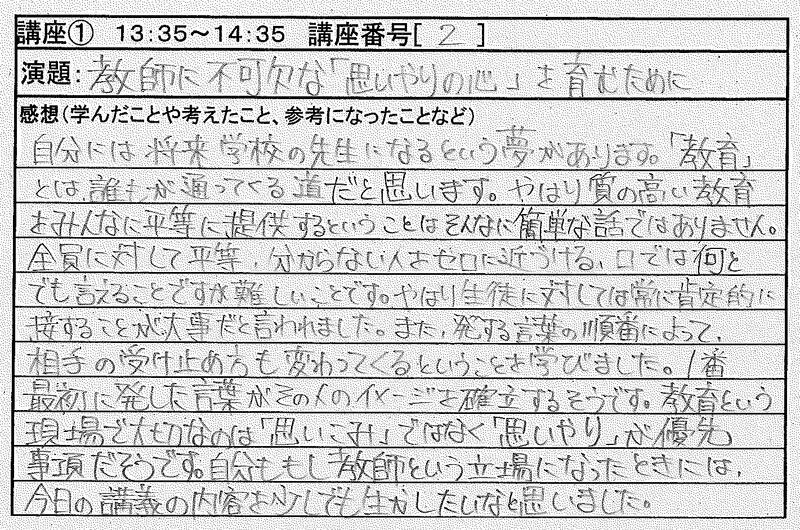 講座① 13:35～14:35 講座番号[ 2 ]
演題: 教師に不可欠な「思いやりの心」を育むために
感想(学んだことや考えたこと、参考になったことなど)
自分には将来学校の先生になるという夢があります。「教育」
とは、誰もが通ってくる道だと思います。やはり質の高い教育
をみんなに平等に提供するということはそんなに簡単な話ではありません。
全員に対して平等、分からない人をゼロに近づける、口では何と
でも言えることですが難しいことです。やはり生徒に対しては常に肯定的に
接することが大事だと言われました。また、発する言葉の順番によって、
相手の受け止め方も変わってくるということを学びました。1番
最初に発した言葉がその人のイメージを確立するそうです。教育という
現場で大切なのは「思いこみ」ではなく「思いやり」が優先
事項だそうです。自分ももし教師という立場になったときには、
今日の講義の内容を少しでも生かしたいなと思いました。